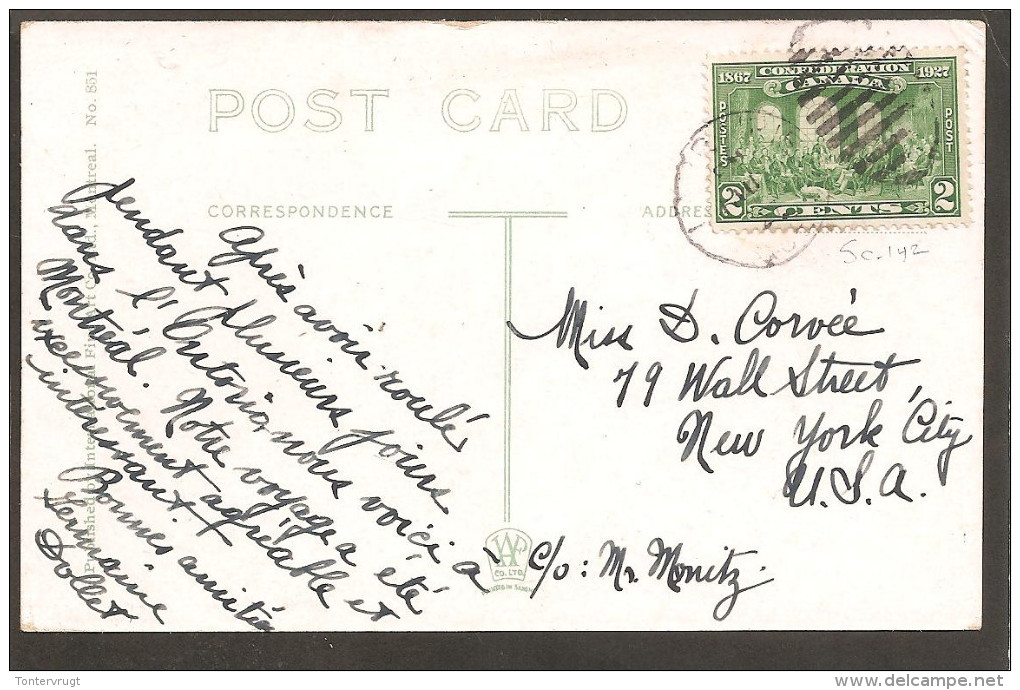 POST CARD
1867 CONFEDERATION 1927
CANADA
POSTES
POST
2 CENTS 2
CORRESPONDENCE
ADDRES
Sc. 142
Après avoir roulé
pendant plusieurs jours
dans l'Ontario, nous voici à
Montréal. Notre voyage a été
excessivement agréable et
intéressant
Bonnes amitiés
Germaine
Dollet
Miss D. Corvée
79 Wall Street,
New York City
U.S.A.
c/o: Mr. Monitz.
CO. LTD.
Montreal. No. 851
Tontervrugt
delcampe.net